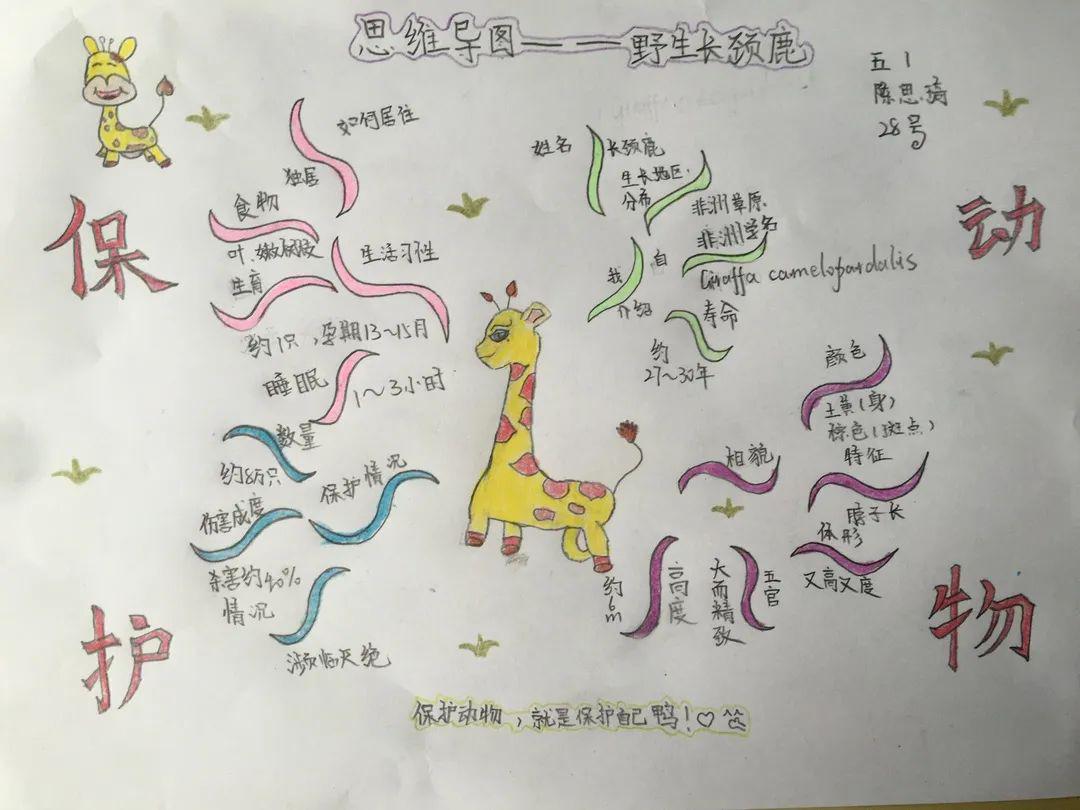 思维导图——野生长颈鹿
五 1
陈思琦
28号
保
护
动
物
如何居住
独居
食物
叶、嫩树枝
生活习性
生育
约1只，孕期13~15月
睡眠
1~3小时
数量
约8万只
保护情况
伤害成度
杀害约40%
情况
濒临灭绝
姓名
长颈鹿
生长地区、
分布
非洲草原
非洲学名
自
我
介绍
Giraffa camelopardalis
寿命
约
27~30年
颜色
土黄(身)
棕色(斑点)
相貌
特征
脖子长
体形
又高又度
五官
大而精致
高度
约6m
保护动物，就是保护自己鸭！